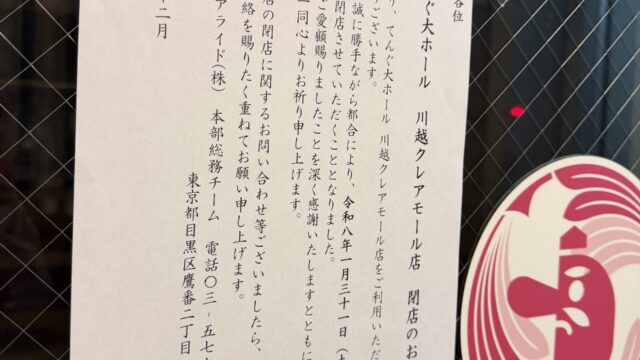 各位
ぐ大ホール 川越クレアモール店 閉店のお
り、てんぐ大ホール 川越クレアモール店をご利用いただ
ございます。
誠に勝手ながら都合により、令和八年一月三十一日（
閉店させていただくこととなりました。
ご愛顧賜りましたことを深く感謝いたしますとともに
一同心よりお祈り申し上げます。
店の閉店に関するお問い合わせ等ございましたら、
絡を賜りたく重ねてお願い申し上げます。
十二月
アライド（株） 本部総務チーム 電話〇三-五七
東京都目黒区鷹番二丁目